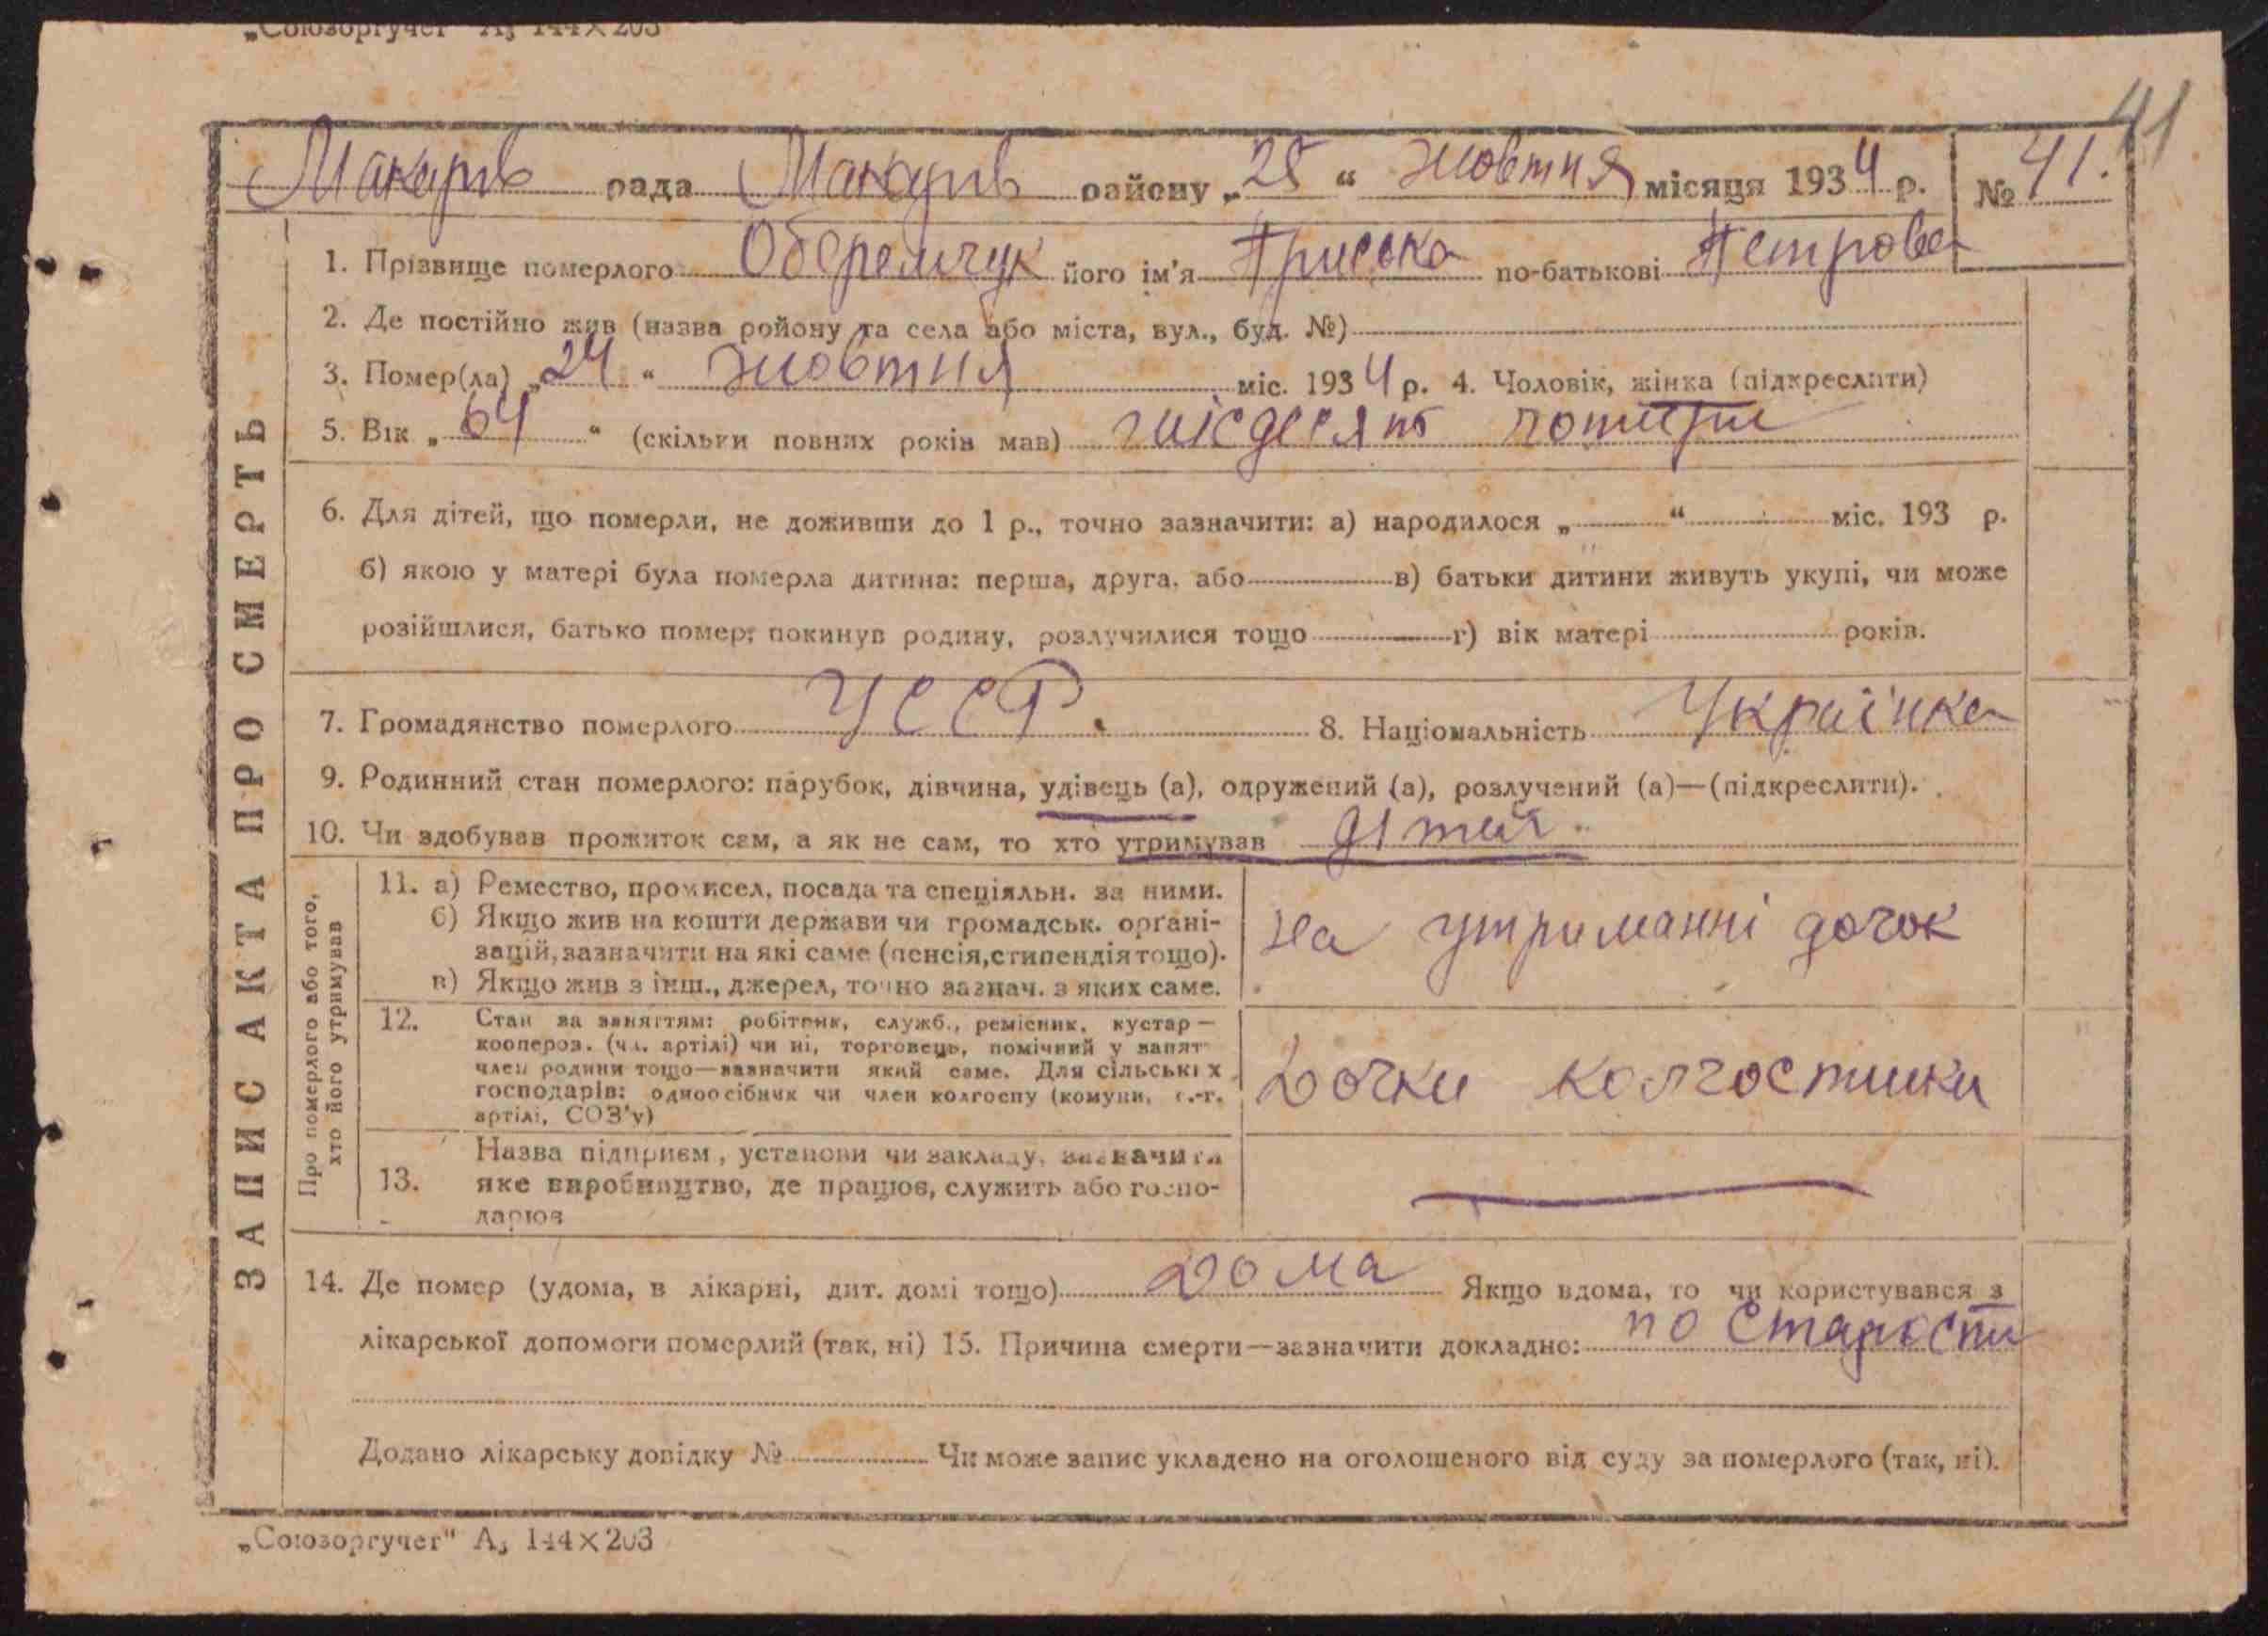 „Союзоргучет" А₅ 144×203
41
Макарів рада Макарів району „25" жовтня місяця 1934 р. № 41.
1. Прізвище померлого Оберемчук його ім'я Приська по-батькові Петрова
2. Де постійно жив (назва ройону та села або міста, вул., буд. №)
3. Помер(ла) „24" жовтня міс. 1934 р. 4. Чоловік, жінка (підкреслити)
5. Вік „64" (скільки повних років мав) шісдесят чотири
6. Для дітей, що померли, не доживши до 1 р., точно зазначити: а) народилося „ " міс. 193 р.
б) якою у матері була померла дитина: перша, друга, або в) батьки дитини живуть укупі, чи може
розійшлися, батько помер, покинув родину, розлучилися тощо г) вік матері років.
7. Громадянство померлого УССР. 8. Національність Українка
9. Родинний стан померлого: парубок, дівчина, удівець (а), одружений (а), розлучений (а)—(підкреслити).
10. Чи здобував прожиток сам, а як не сам, то хто утримував діти.
ЗАПИС АКТА ПРО СМЕРТЬ
Про померлого або того,
хто його утримував
11. а) Ремество, промисел, посада та спеціяльн. за ними.
б) Якщо жив на кошти держави чи громадськ. орґані-
зацій, зазначити на які саме (пенсія, стипендія тощо).
в) Якщо жив з інш., джерел, точно зазнач. з яких саме.
на утриманні дочок
12. Стан за заняттям: робітник, служб., ремісник, кустар—
коопероз. (чл. артілі) чи ні, торговець, помічний у занят
член родини тощо—зазначити який саме. Для сільських
господарів: одноосібник чи член колгоспу (комуни, с.-г.
артілі, СОЗ'у)
Дочки колгостники
13. Назва підприєм, установи чи закладу, зазначити
яке виробництво, де працює, служить або госпо-
дарює
14. Де помер (удома, в лікарні, дит. домі тощо) дома Якщо вдома, то чи користувався з
лікарської допомоги померлий (так, ні) 15. Причина смерти—зазначити докладно: по старости
Додано лікарську довідку № Чи може запис укладено на оголошеного від суду за померлого (так, ні).
„Союзоргучет" А₅ 144×203